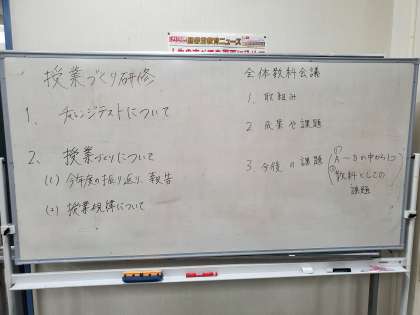 授業づくり研修
1. チャレンジテストについて
2. 授業づくりについて
(1) 今年度の振り返り、報告
(2) 授業規律について
全体教科会議
1. 取組み
2. 成果や課題
3. 今後の課題
① A～Dの中から1つ
② 教科としての
課題